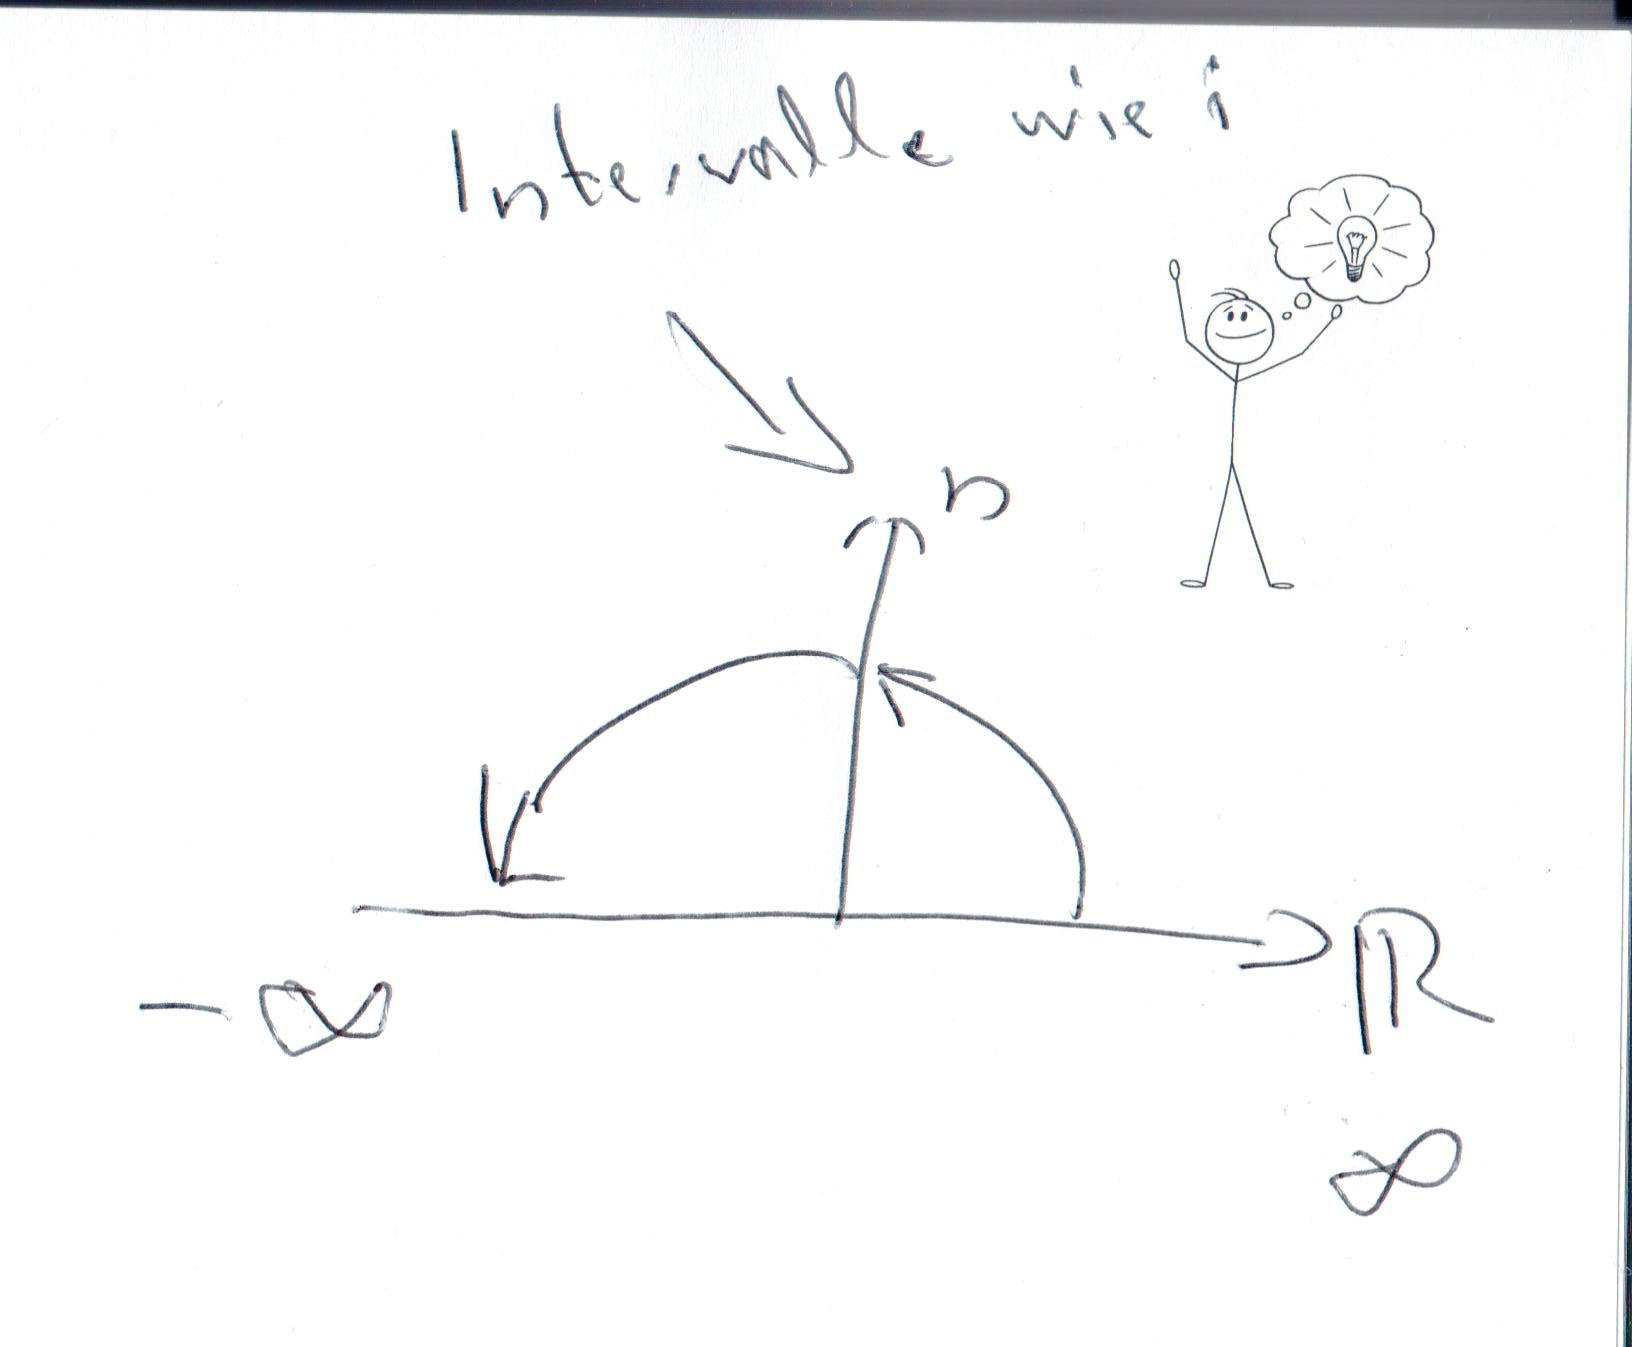 Intervalle wie i
n
-∞ ℝ
∞